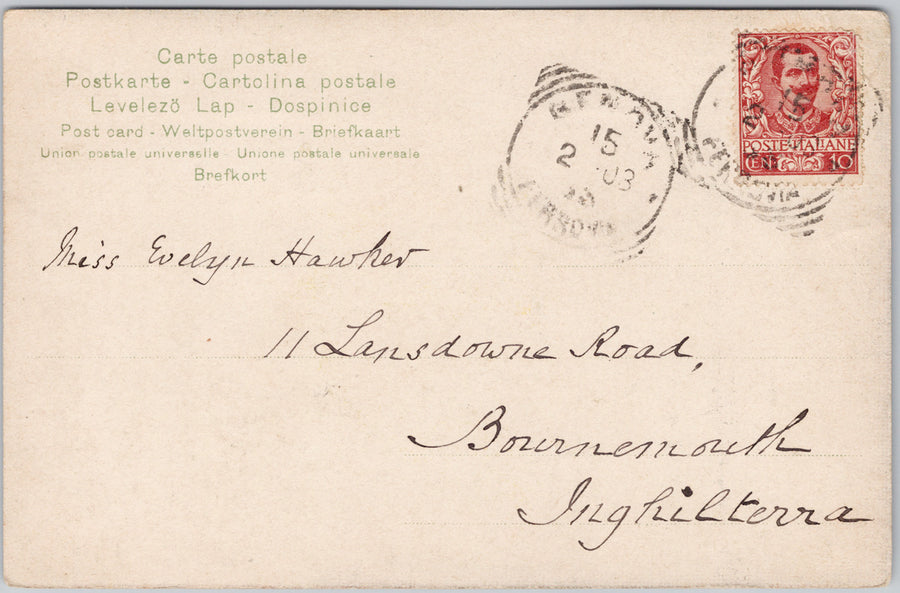 Carte postale
Postkarte - Cartolina postale
Levelező Lap - Dospinice
Post card - Weltpostverein - Briefkaart
Union postale universelle - Unione postale universale
Brefkort
GENOVA
15
2 03
FERROVIA
15
FERROVIA
POSTE ITALIANE
CENT. 10
Miss Evelyn Hawker
11 Lansdowne Road,
Bournemouth
Inghilterra